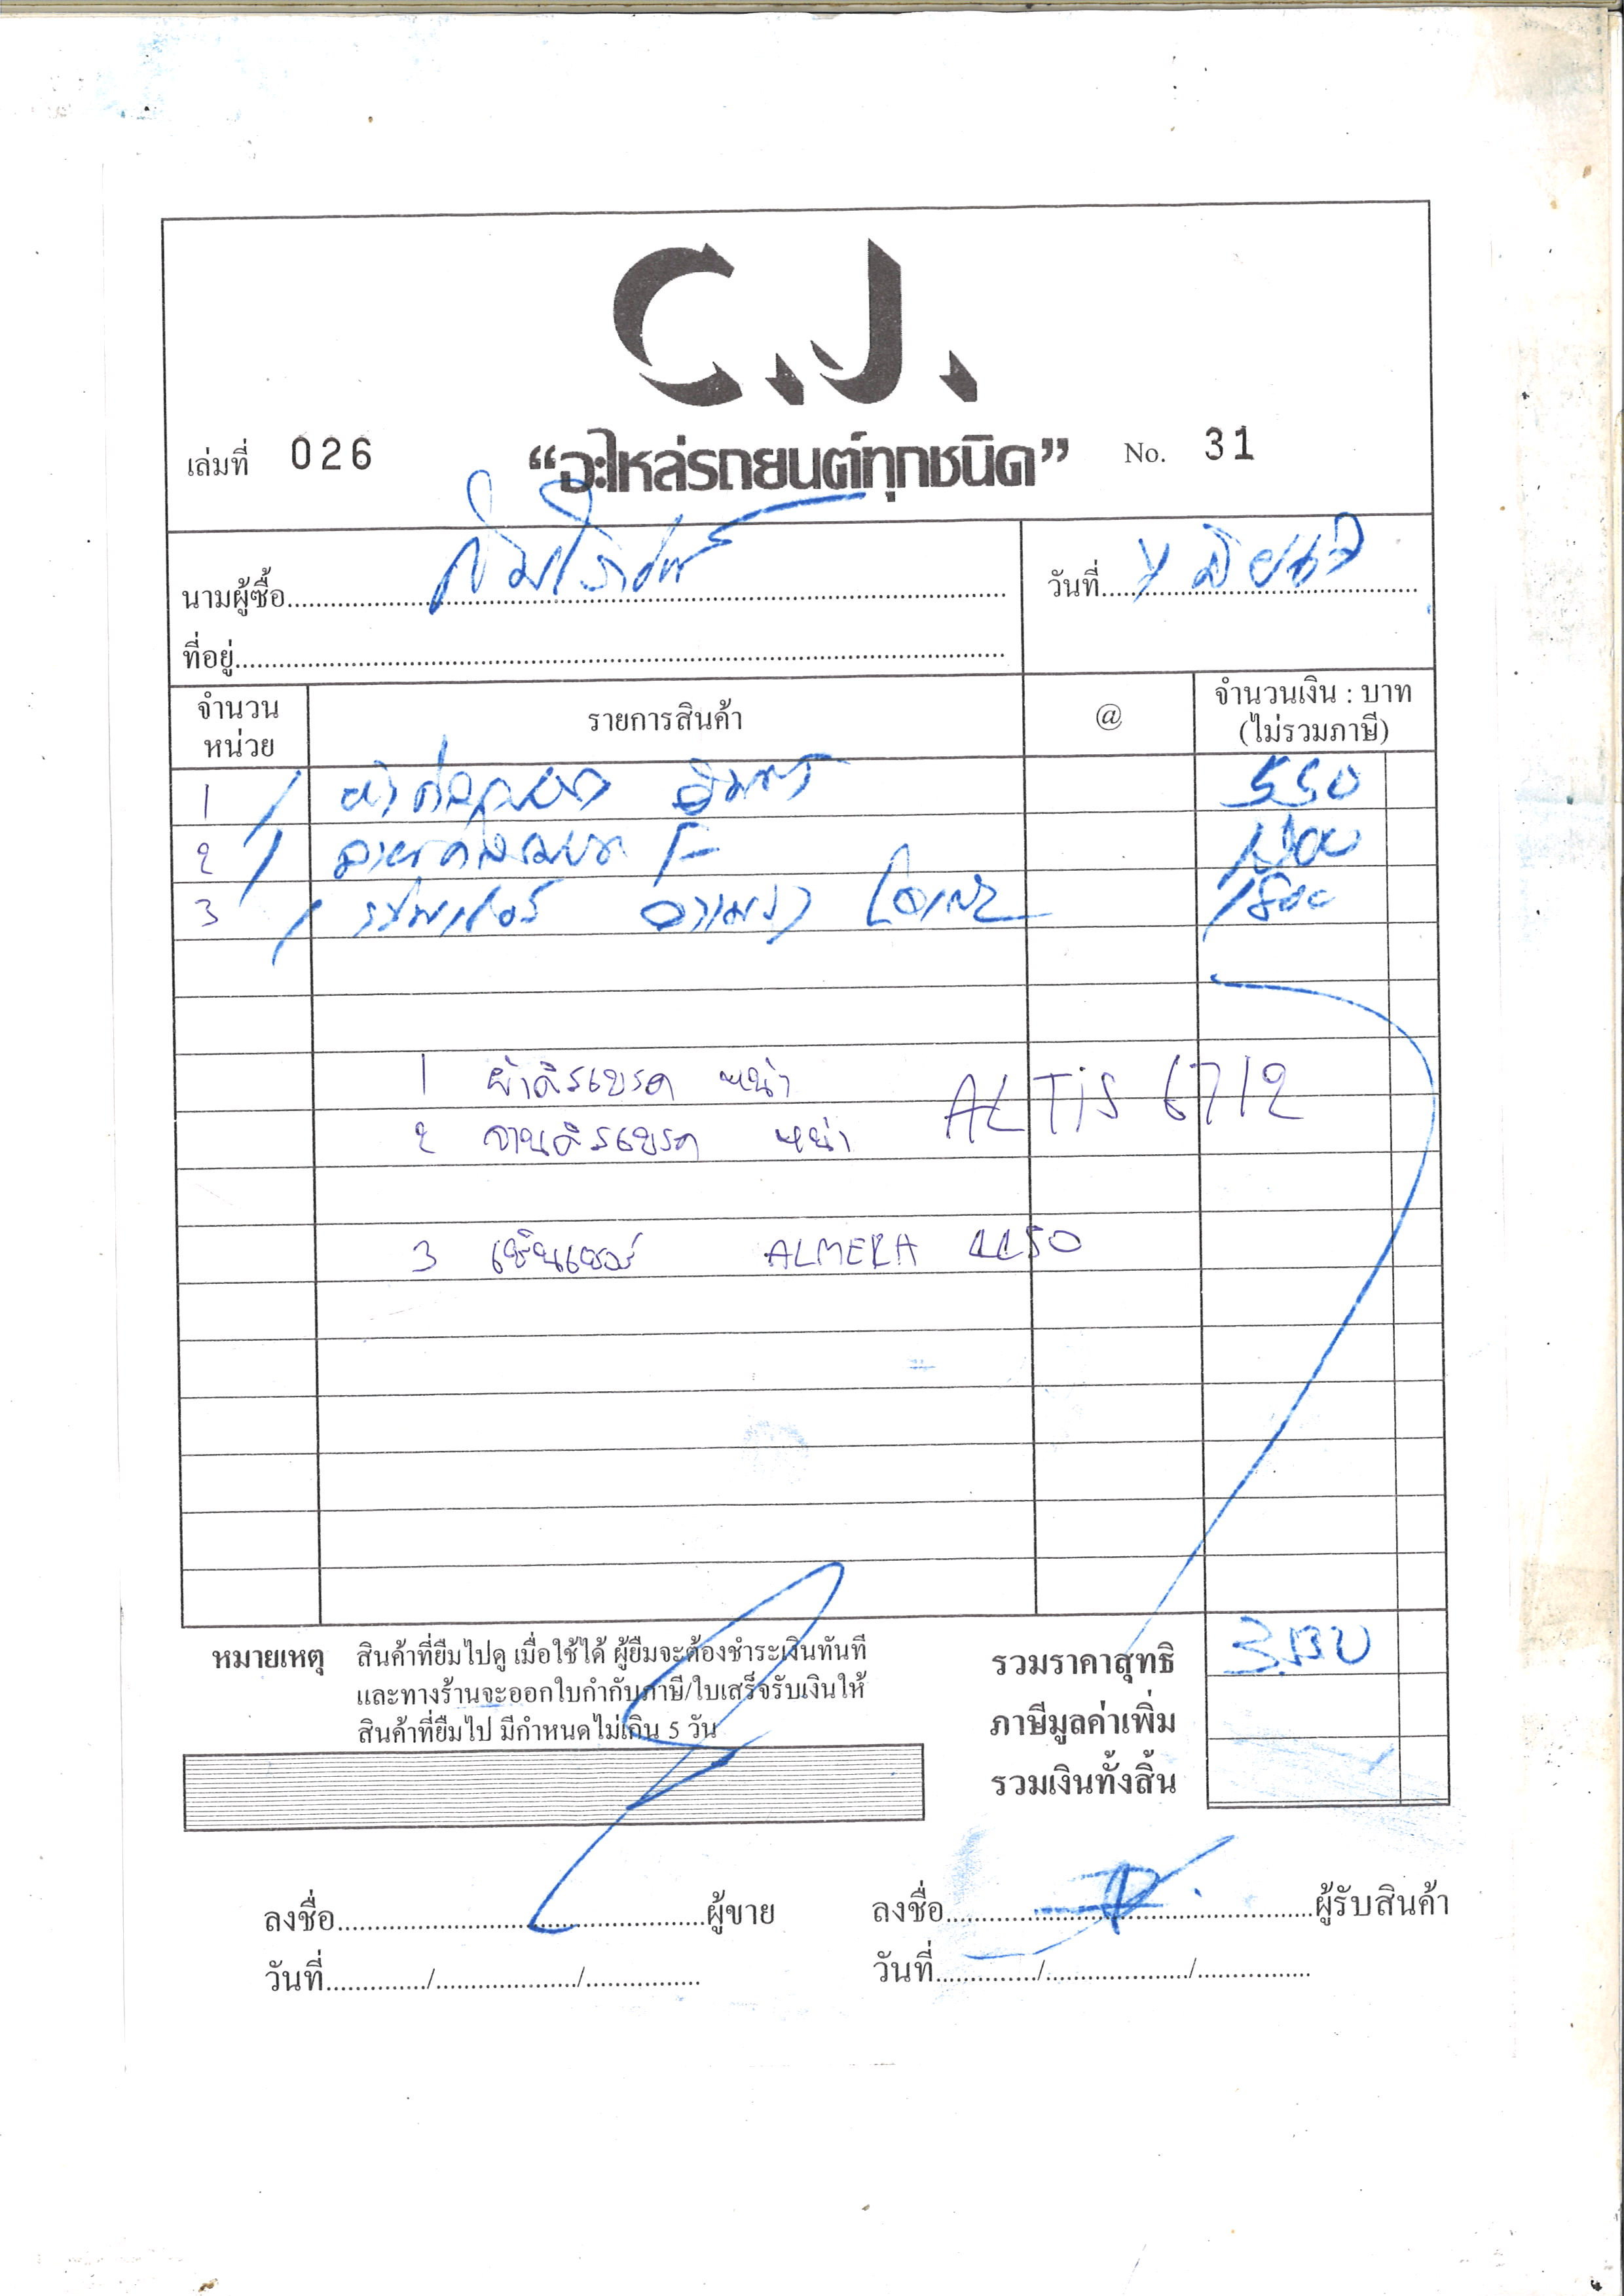 C.J.
เล่มที่ 026 “อะไหล่รถยนต์ทุกชนิด” No. 31
นามผู้ซื้อ วันที่
ที่อยู่
จำนวน หน่วย รายการสินค้า @ จำนวนเงิน : บาท (ไม่รวมภาษี)
1 550
2
3 1800
1 ผ้าดิสเบรค หน้า ALTIS 6712
2 จานดิสเบรค หน้า
3 เซ็นเซอร์ ALMERA 1150
หมายเหตุ สินค้าที่ยืมไปดู เมื่อใช้ได้ ผู้ยืมจะต้องชำระเงินทันที
และทางร้านจะออกใบกำกับภาษี/ใบเสร็จรับเงินให้
สินค้าที่ยืมไป มีกำหนดไม่เกิน 5 วัน
รวมราคาสุทธิ
ภาษีมูลค่าเพิ่ม
รวมเงินทั้งสิ้น
ลงชื่อ ผู้ขาย ลงชื่อ ผู้รับสินค้า
วันที่ / / วันที่ / /